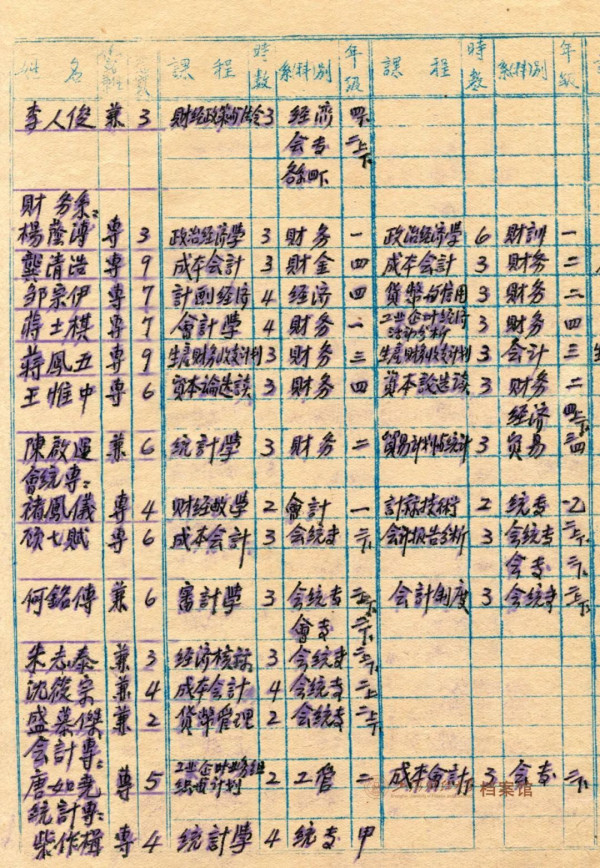 姓 名 課 程 時數 系(科)別 年級 課 程 時數 系(科)別 年級
李人俊 兼 3 财经政策与法令 3 经济 四下
会专 二上下
各系四下
财务系:
楊蔭溥 専 3 政治经济學 3 财务 一 政治经济學 6 財訓 一
龔清浩 専 9 成本会计 3 财金 四 成本会计 3 财务 二
邹宗伊 専 7 計劃经济 4 经济 四 貨幣与信用 3 财务 二
蒋士棋 専 7 會計學 4 财务 一 工业企业经济活动分析 3 财务 四
蒋鳳五 専 9 生産财务收支计划 3 财务 三 生産财务收支计划 3 会计 三
王惟中 専 6 资本論选读 3 财务 四 资本論选读 3 财务 二
经济 四上下
陳啟運 兼 6 統計學 3 财务 二 贸易计划与统计 3 贸易 三四
會統専:
禇鳳儀 専 4 财经数學 2 會計 一 計祘技術 2 統专 一乙
顾七賦 専 6 成本会計 3 会統专 二下 会计报告分析 3 会統专 二下
会专 二下
何銘傳 兼 6 審計學 3 会統专 二下 会计制度 3 会統专 二下
會专 二下
朱志泰 兼 3 经济核祘 3 会統专 二下
沈俊宗 兼 4 成本会计 4 会統专 二上
盛慕傑 兼 2 貨幣管理 2 会統专 二上下
会計専:
唐如尧 専 5 工业企业业务组织与计划 2 工管 二 成本會計 3 会专 二下
統計専:
柴作楫 専 4 統計學 4 統专 甲
档案馆